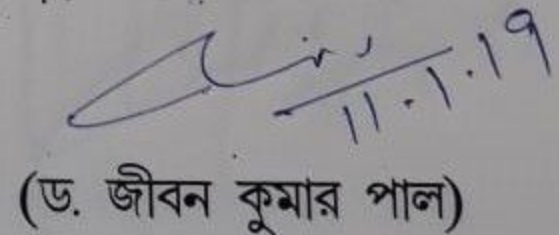 11.1.19
(ড. জীবন কুমার পাল)